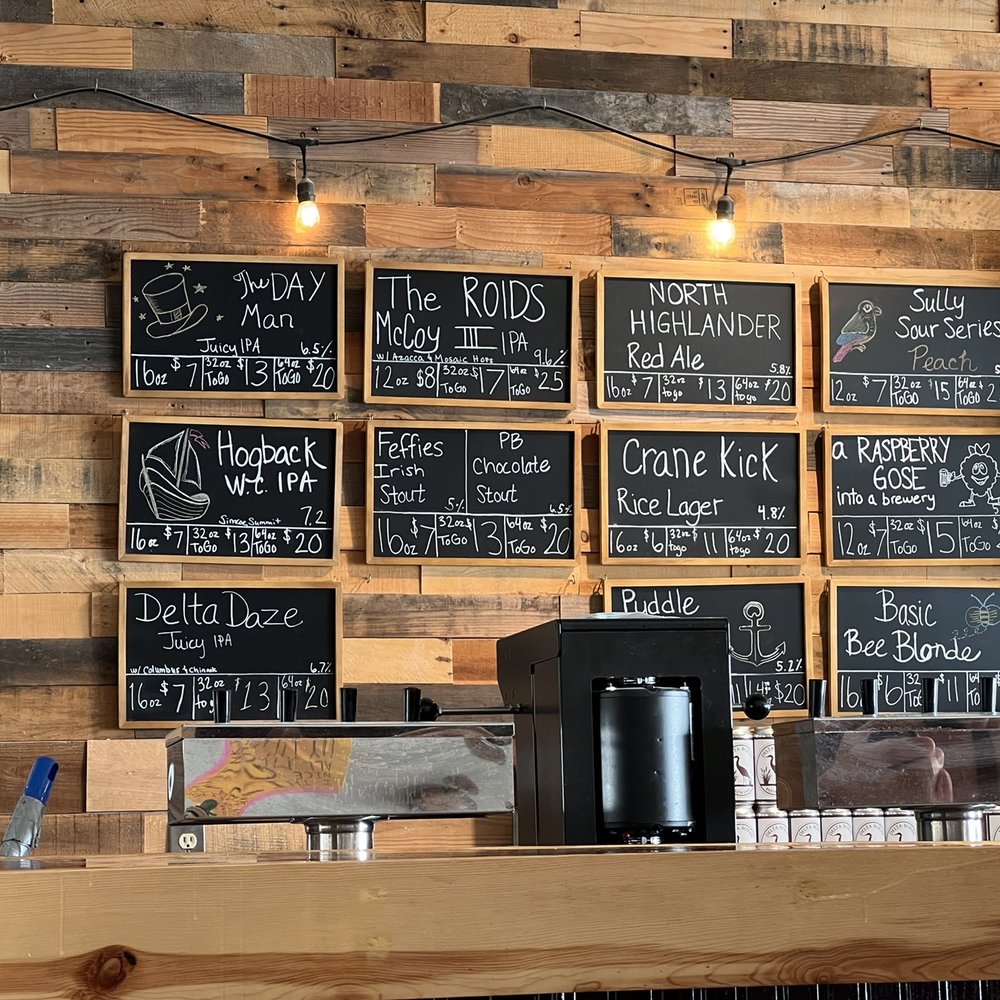 The DAY
Man
Juicy IPA 6.5%
16oz $7 32oz ToGo $13 64oz ToGo $20
The ROIDS
McCoy III IPA
w/ Azacca & Mosaic Hops 9.6%
12oz $8 32oz $17 64oz $25
NORTH
HIGHLANDER
Red Ale 5.8%
16oz $7 32oz togo $13 64oz togo $20
Sully
Sour Series
Peach
12oz $7 32oz ToGo $15 64oz ToGo
Hogback
W.C. IPA
Simcoe, Summit 7.2
16oz $7 32oz ToGo $13 64oz ToGo $20
Feffies
Irish
Stout 5%
PB
Chocolate
Stout 6.5%
16oz $7 32oz ToGo $13 64oz ToGo $20
Crane Kick
Rice Lager 4.8%
16oz $6 32oz togo $11 64oz togo $20
a RASPBERRY
GOSE
into a brewery
12oz $7 32oz ToGo $15 64oz ToGo
Delta Daze
Juicy IPA
w/ Columbus & Chinook 6.7%
16oz $7 32oz ToGo $13 64oz ToGo $20
Puddle
5.2%
$20
Basic
Bee Blonde
16oz $6 32oz $11 64oz